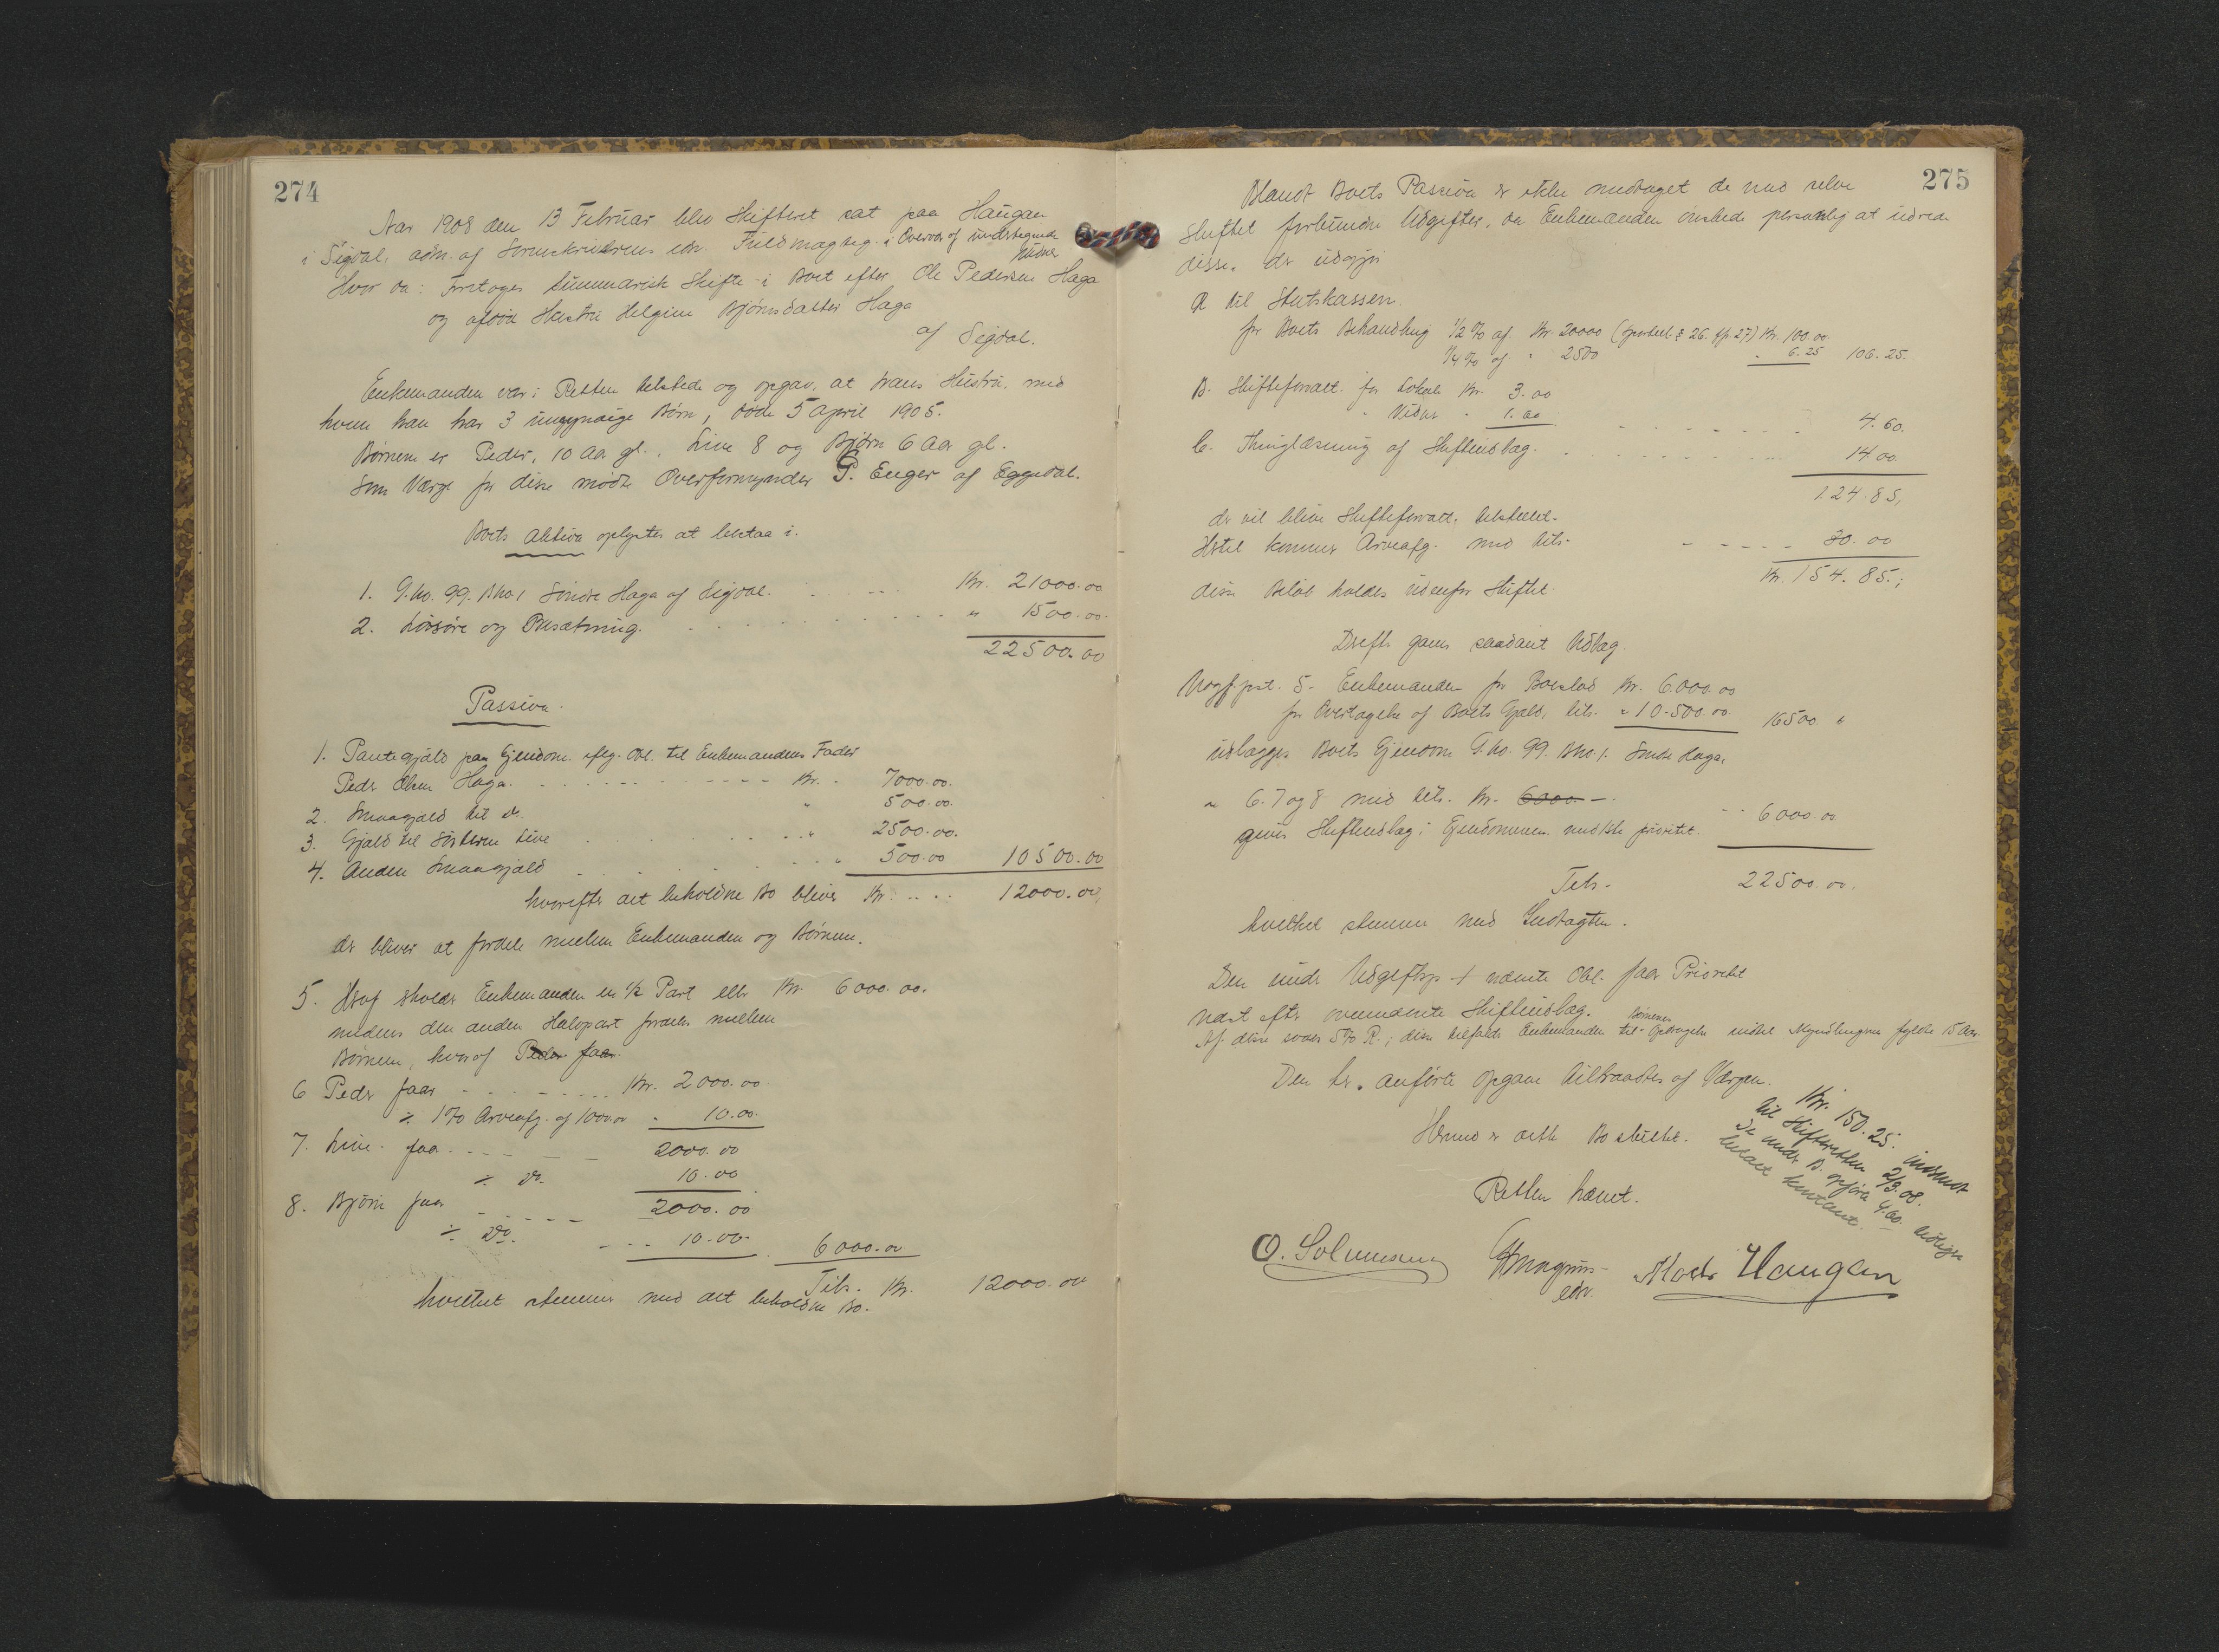 274
Aar 1908 den 13 Februar blev Skifteret sat paa Haugan
i Sigdal, adm. af Sorenskriverens edv. Fuldmægtig i Overvær af undertegnede
Vidner
Hvor da: Foretoges summarisk Skifte i Boet efter Ole Pedersen Haga
og afdøde Hustru Helgine Bjørnsdatter Haga
af Sigdal.
Enkemanden var i Retten tilstede og opgav, at hans Hustru, med
hvem han har 3 umyndige Børn, døde 5 April 1905.
Børnene er Peder, 10 Aar gl., Live 8 og Bjørn 6 Aar gl.
Som Værge for disse mødte Overformynder P. Enger af Eggedal.
Boets Aktiva oplystes at bestaa i.
1. G.No. 99. Bno 1 Søndre Haga af Sigdal. Kr. 21000.00
2. Løsøre og Besætning. " 1500.00
22500.00
Passiva.
1. Pantegjæld paa Ejendom. eflg. Obl. til Enkemandens Fader
Peder Olsen Haga. Kr. 7000.00.
2. Smaagjæld til do. " 500.00.
3. Gjæld til Søsteren Live " 2500.00.
4. Anden Smaagjæld " 500.00 10500.00
hvorefter det beholdne Bo bliver Kr. 12000.00,
der bliver at fordele mellem Enkemanden og Børnene.
5. Heraf tilkommer Enkemanden en 1/2 Part eller Kr 6000.00.
medens den anden Halvpart fordeles mellem
Børnene, hvoraf Peder faar.
6 Peder faar Kr. 2000.00
÷ 1% Arveafg. af 1000.00 " 10.00.
7. Live faar 2000.00
÷ do. 10.00
8. Bjørn faar 2000.00
÷ do. 10.00 6000.00
Tils. Kr. 12000.00
hvilket stemmer med det beholdne Bo.
275
Blandt Boets Passiva er ikke medtaget de med selve
Skiftet forbundne Udgifter, da Enkemanden ønskede personlig at udrede
disse. der udgjør
A til Statskassen.
for Boets Behandling 1/2 % af Kr 20000 (Sportell. § 26. jfr. 27) Kr. 100.00
1/4 % af " 2500 " 6.25 106.25.
B. Skifteforvalt. for Lokale Kr. 3.00
" Vidner " 1.60 4.60.
C. Thinglæsning af Skifteudlæg. 14.00
124.85,
der vil blive Skifteforvalt. tilstillet.
Hertil kommer Arveafg. med tils. 30.00
Kr. 154.85.;
disse Beløb holdes udenfor Skiftet.
Derefter gaves saadant Udlæg.
Udgf.pst. 5. Enkemanden for Boeslod Kr. 6.000.00
for Overtagelse af Boets Gjæld, tils. " 10.500.00 16500 "
udlægges Boets Ejendom G.No. 99. Bno. 1. Søndre Haga,
" 6. 7 og 8 med tils. Kr. 6000 -
gives Skifteudlæg i Ejendommen med 1ste prioritet. 6000.00
Tils. 22500.00.
hvilket stemmer med Indtægten.
Den under Udgiftsp. 1 nævnte Obl. faar Prioritet
næst efter ovennævnte Skifteudlæg.
Børnenes
Af disse svares 5% R.; disse tilfalder Enkemanden til Opdragelse indtil Myndlingerne fylder 15 Aar.
Den her anførte Opgave tiltraadtes af Værgen.
Hermed er dette Bo sluttet.
Retten hævet.
Kr. 150.25. indsendt
til Skifteretten 2/3.08.
De under B. opførte 4.60 tidligere
betalt kontant.
O. Solumsmoen
edv.
Mads Haugan